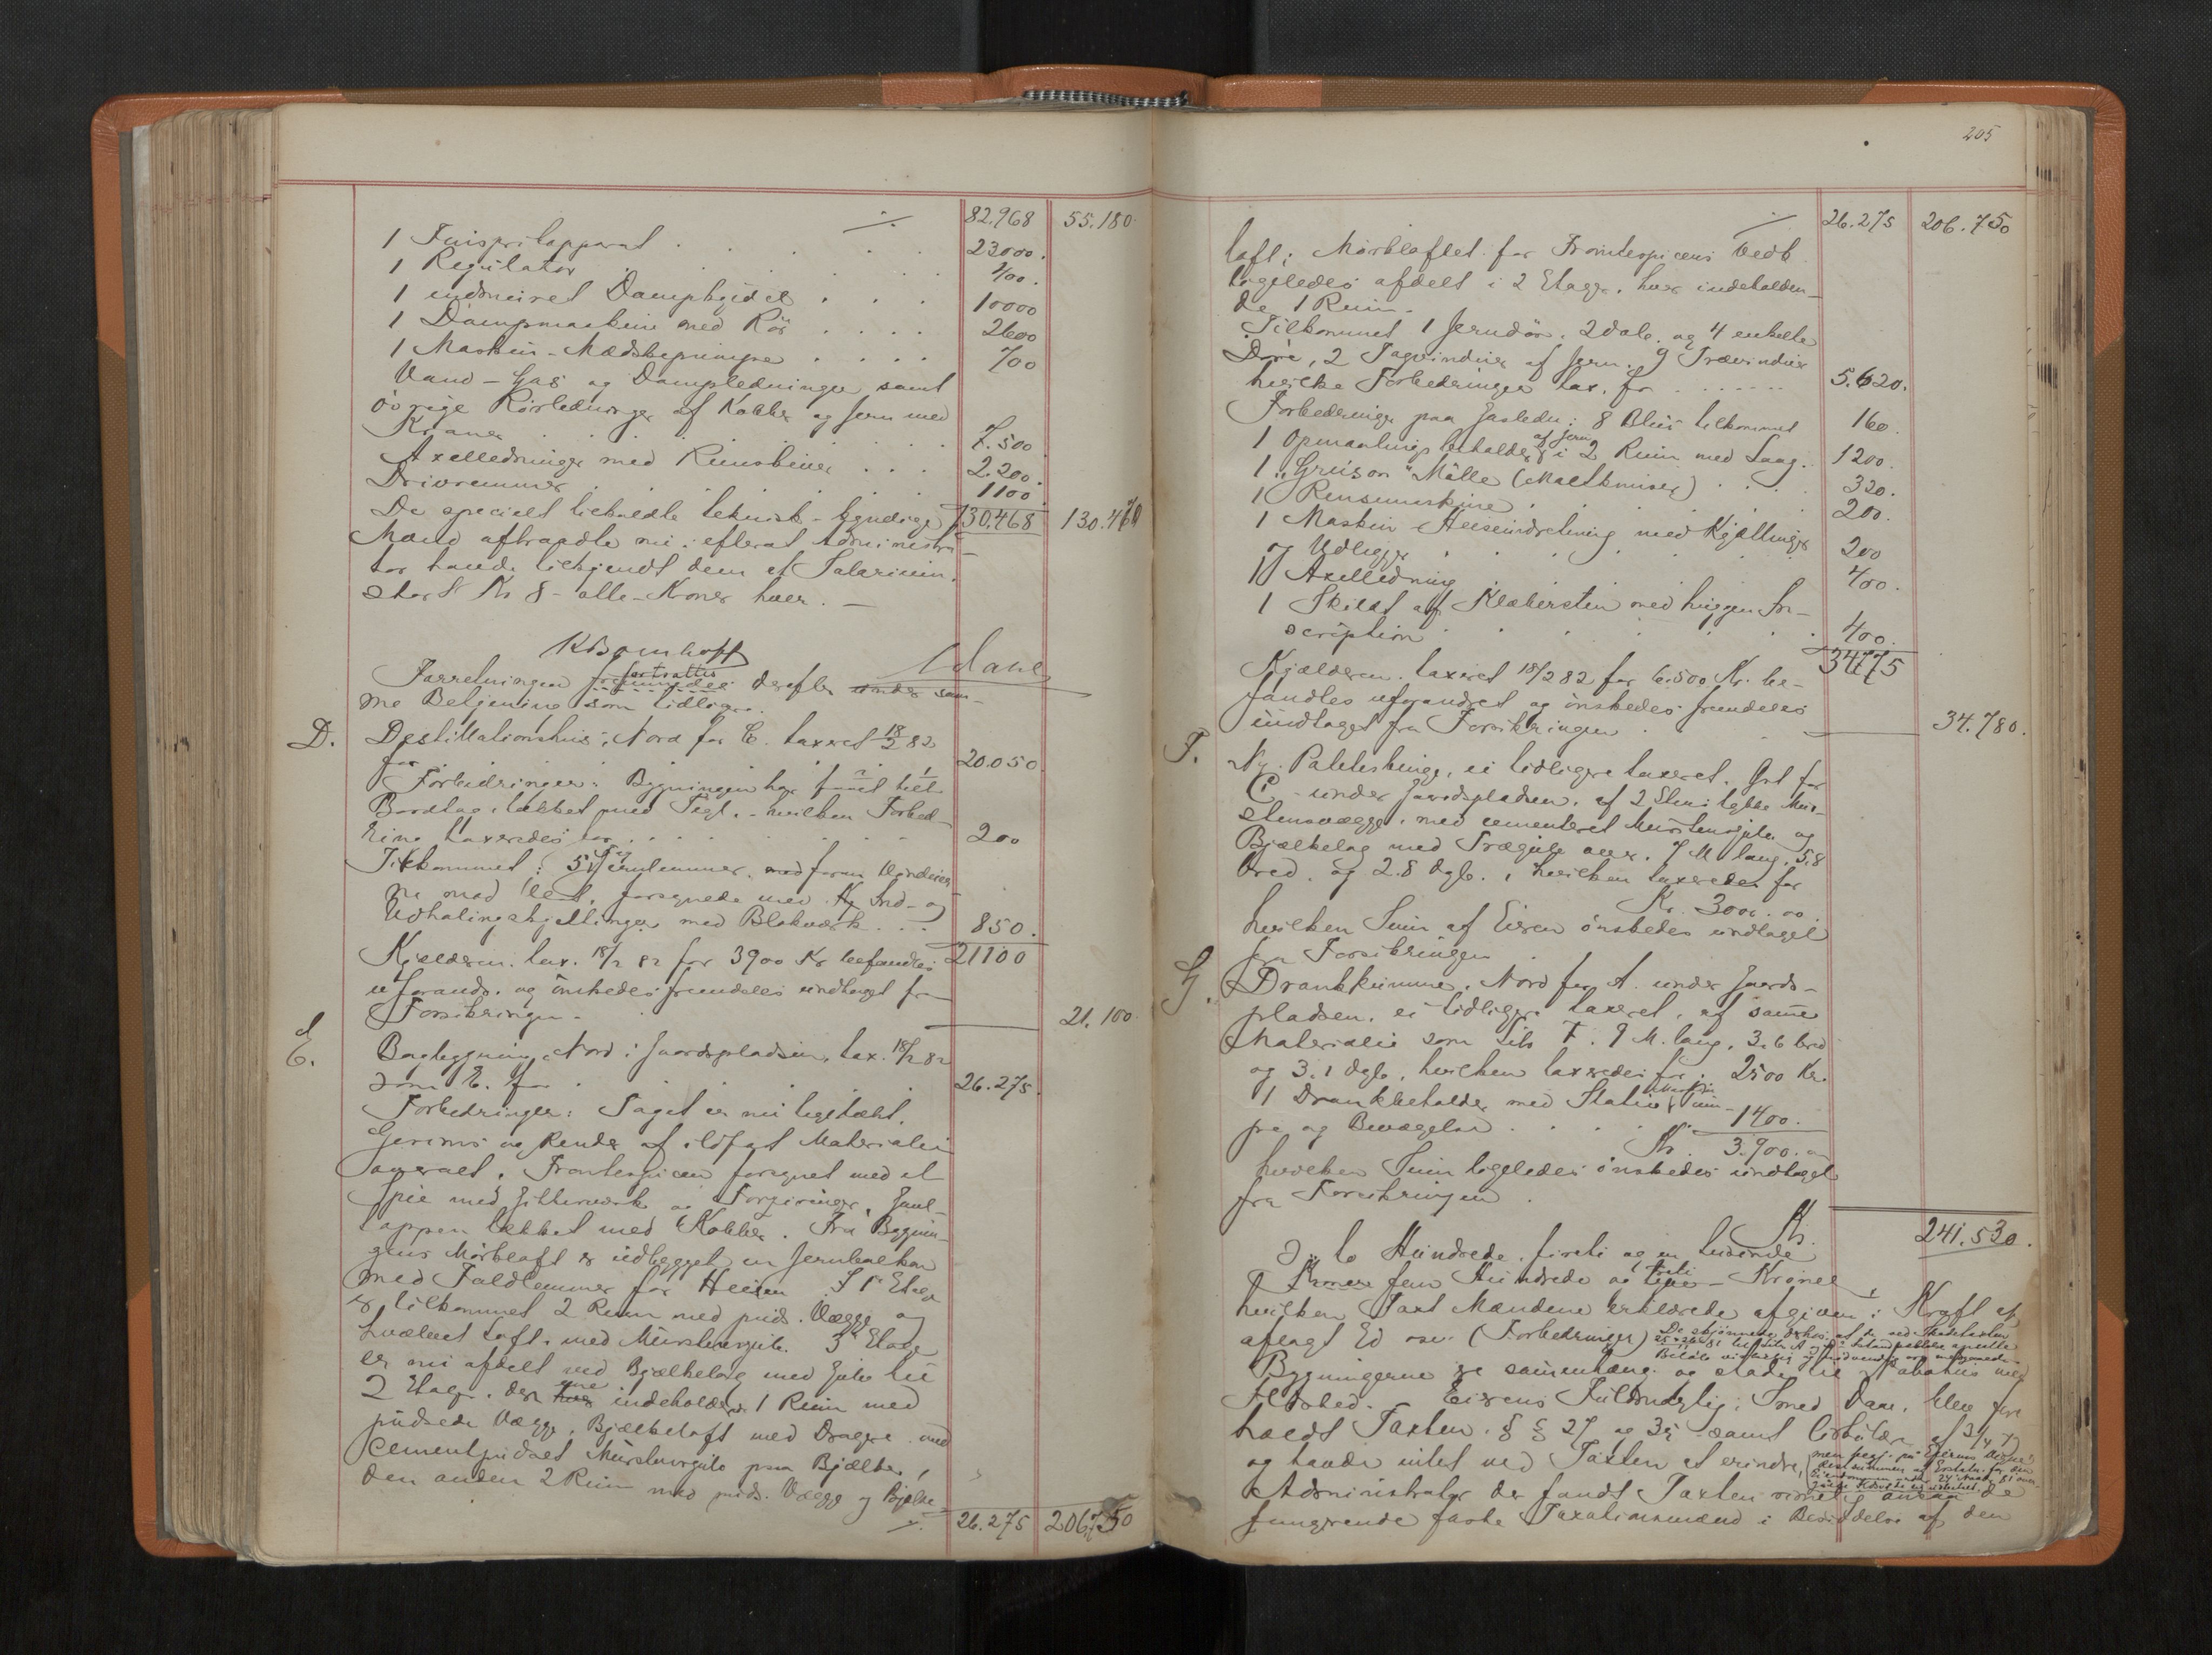 ·/. 82.968 55.180.
1 Finspritapparat . . . . 23000.
1 Regulator . . . . . 400.
1 indmuret Dampkjedel . . . 10000
1 Dampmaskine med Rör . . . . 2600
1 Maskin-Mædskepumpe . . . . 700
Vand-Gas og Dampledninger samt
övrige Rörledninger af Kobber og Jern med
Kraner . . . . . . . . 7.500
Axelledninger med Remskiver . . . 2.200.
Drivremmer . . . . . . 1100.
De specielt tilkaldte teknisk-kyndige 130.468 130.470
Mænd aftraadte nu, efterat Administra-
tor havde tilkjendt dem et Salarium,
stort Kr 8 - otte - Kroner hver. —
Forretningen fortsattes derefter under sam-
me Betjening som tidligere.
D. Destillationshus, Nord for C. taxeret 18/2 82
for . . . . . . . 20.050
Forbedringer: Bygningen har faaet helt
Bordtag, tækket med Tegl, - hvilken Forbed-
ring taxeredes for . . . . . . 200
Tilkommet: 5 Jernlemmer, foran Vinduer-
ne mod Vest, forsynede med Ind- og
Udhalingskjettinger med Blokværk . . . 850.
Kjælderen, tax. 18/2 82 for 3900 Kr befandtes 21100
uforandr. og önskedes fremdeles undtaget fra
Forsikringen. 21.100.
E. Bagbygning, Nord i Gaardspladsen, tax. 18/2 82
som E. for . 26.275.
Forbedringer: Taget er nu tegltækt,
Gesims og Render af ildfast Materiale
overalt. Frontespicen forsynet med et
Spir med Gitterværk og Forziringer, Gavl-
toppen tækket med Kobber. Fra Bygnin-
gens Mörkloft er udbygget en Jernbalkon
med Faldlemmer for Heisen. I 1e Etage
er tilkommet 2 Rum med puds. Vægge og
hvælvet Loft, med Murstensgulv. 3e Etage
er nu afdelt ved Bjælkelag med Gulv til
2 Etager, den ene indeholder 1 Rum med
pudsede Vægge, Bjælkeloft med Dragere med
Cementpudset Murstensgulv paa Bjælker,
den anden 2 Rum med puds. Vægge og Bjælke-
·/. 26.275 206.750
205
·/. 26.275 206.750
loft; Mörkloftet for Frontespicens Vedk.
ligeledes afdelt i 2 Etager, hver indeholden-
de 1 Rum.
Tilkommet 1 Jerndör, 2 dob. og 4 enkelte
Döre, 2 Tagvinduer af Jern, 9 Trævinduer
hvilke Forbedringer tax. for . . . . . . 5.620.
Forbedringer paa Gasledn: 8 Blus tilkommet 160.
1 Opmaalingsbeholder af Jern i 2 Rum med Laag. 1200.
1 „Gruson" Mölle (Maltknuser) . . . . 320.
1 Rensemaskine . . . . . . 200.
1 Maskin-Heiseindretning med Kjættinger
og Udligger . . . . . . . 200
1 Axelledning . . . . . . . 400.
1 Skildt af Klæbersten med huggen In-
scription . . . . . . . 400.
34775
Kjælderen, taxeret 18/2 82 for 6.500 Kr. be-
fandtes uforandret og önskedes fremdeles
undtaget fra Forsikringen . 34.780.
F. Ny Potteskinge, ei tidligere taxeret, Öst for
C - under Gaardspladsen, af 2 Sten tykke Mur-
stensvægge, med cementeret Murstensgulv og
Bjælkelag med Trægulv over, 7 M lang, 5,8
bred og 2.8 dyb, hvilken taxeredes for
Kr. 3000.00.
hvilken Sum af Eieren önskedes undtaget
fra Forsikringen .
G. Drankkumme, Nord for A. under Gaards-
pladsen, ei tidligere taxeret, af samme
Materiale som Litr. F. 9 M. lang, 3.6 bred
og 3.1 dyb, hvilken taxeredes for . 2500 Kr.
1 Drankbeholder med Stativ, Maskin Pum-
pe og Bevægelse . . . . 1400.
Kr. 3.900.00
hvilken Sum ligeledes önskedes undtaget
fra Forsikringen .
Kr. 241.530.
To Hundrede, firti og en tusinde
fem Hundrede og treti - Kroner,
hvilken Taxt Mændene erklærede afgiven i Kraft af
aflagt Ed osv. (Forbedringer)
Bygningerne er sammenhæng. og stade til
Ildsted. Eierens Fuldmægtig, Smed Dahl, blev fore-
holdt Taxten, § § 27 og 35 samt Cirkulær af 3/4
og havde intet ved Taxten at erindre,
Administrator der fandt Taxten rimelig ansaa de
fungerende faste Taxationsmænd i Besiddelse af den